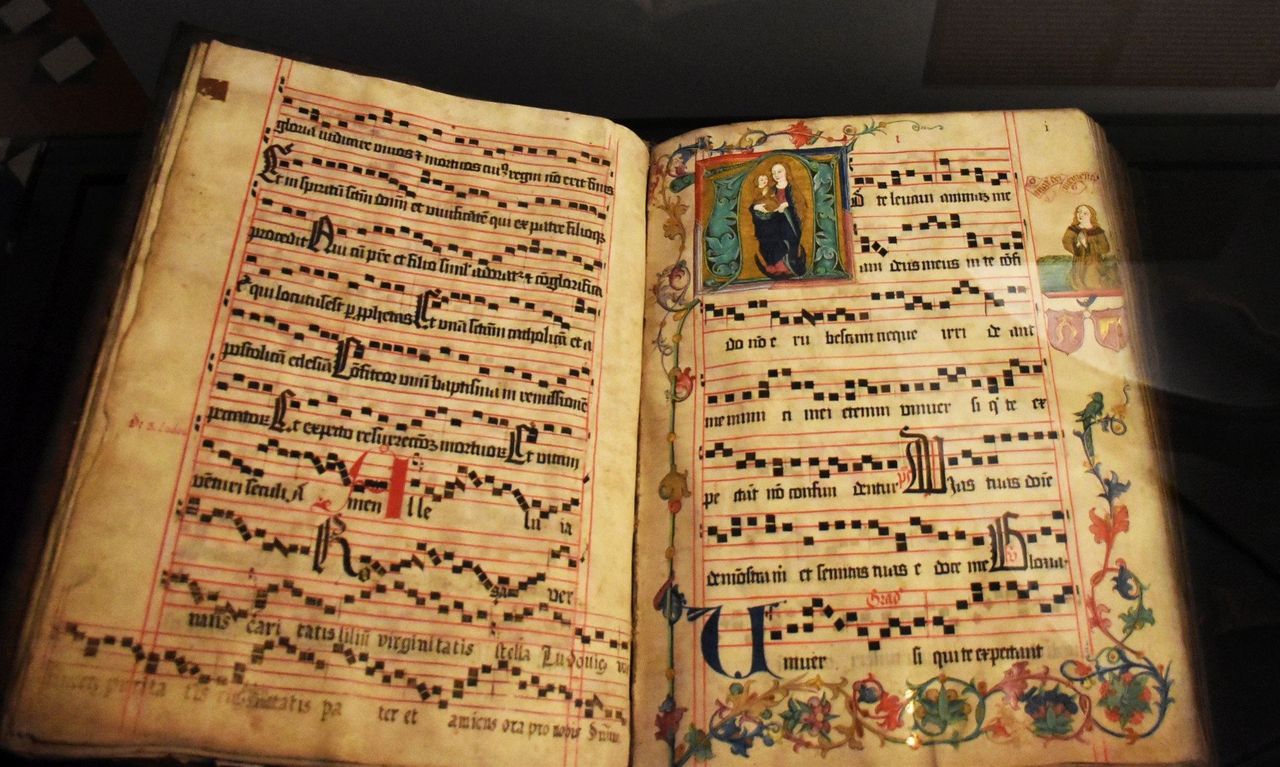 gloria iudicare vivos ⁊ mortuos cuiꝰ regni nō erit finis
Et in spiritū sctm̄ dom̄ et vivificātē qui ex patre filioqꝫ
procedit Qui cū pr̄e et filio simł adorat᷑ ⁊ cōglorifica
t᷑ qui locutus est ꝑ ꝓphetas Et unā sctam̄ catholicā et a
postolicā ecclesiā Cōfiteor unū baptisma in remissionē
peccatorꝝ Et expecto resurrectōꝫ mortuorꝝ Et vitam
vēturi seculi A
men Alle lu ia
Ro sa ver
nans cari tatis liliū virginitatis stella Ludovig
ter et amicus ora pro nobis
i
i
Ad te levavi animaꝫ me
am deus meus in te cōfi
do nō e ru bescam neque irri de ant
me inim ci mei etenim univer si q te ex
pe ctāt nō confun dentur ps Vias tuas dn̄e
demōstra m et semitas tuas e doce me Gloria
Grad
Univer si qui te expectant